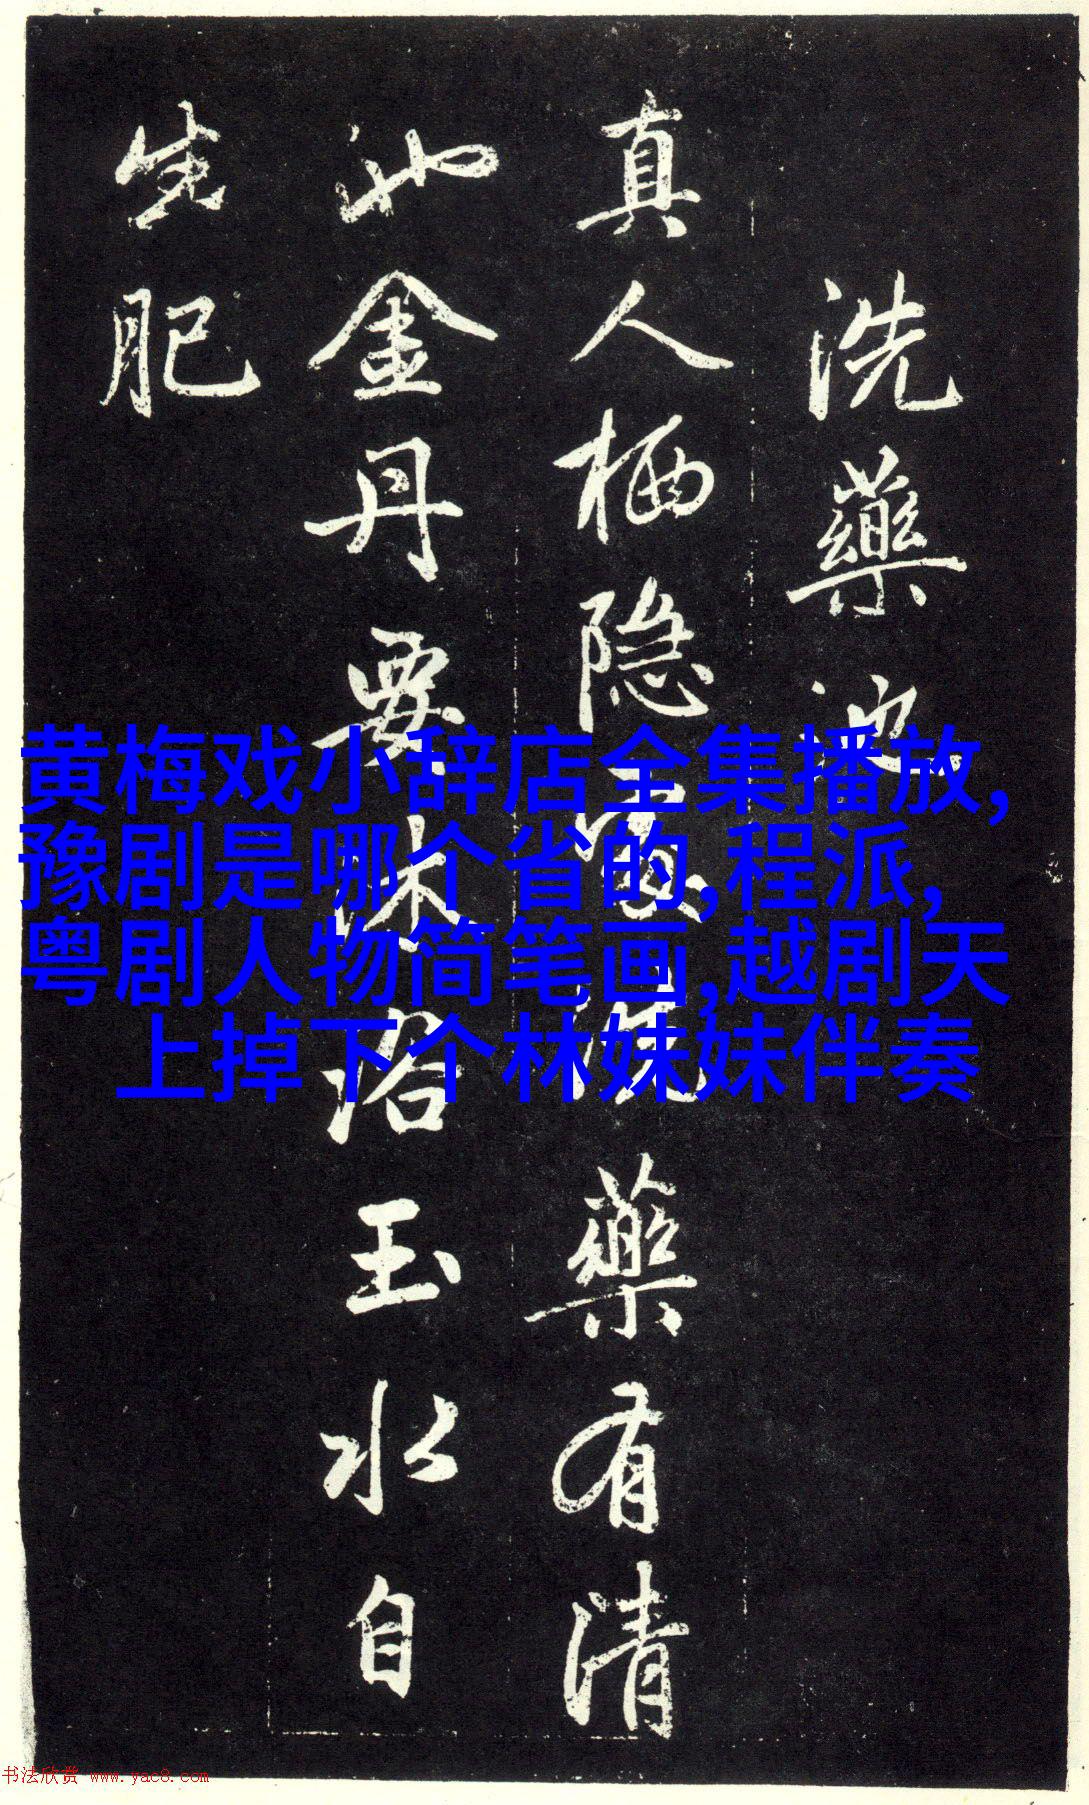 洗藥池
真人栖隐處洗藥有清
池金丹要沐浴玉水自
生肥
黄梅戏小辞店全集播放,
豫剧是哪个省的,程派,
粤剧人物简笔画,越剧天
上掉下个林妹妹伴奏
书法欣赏 www.yac8.com